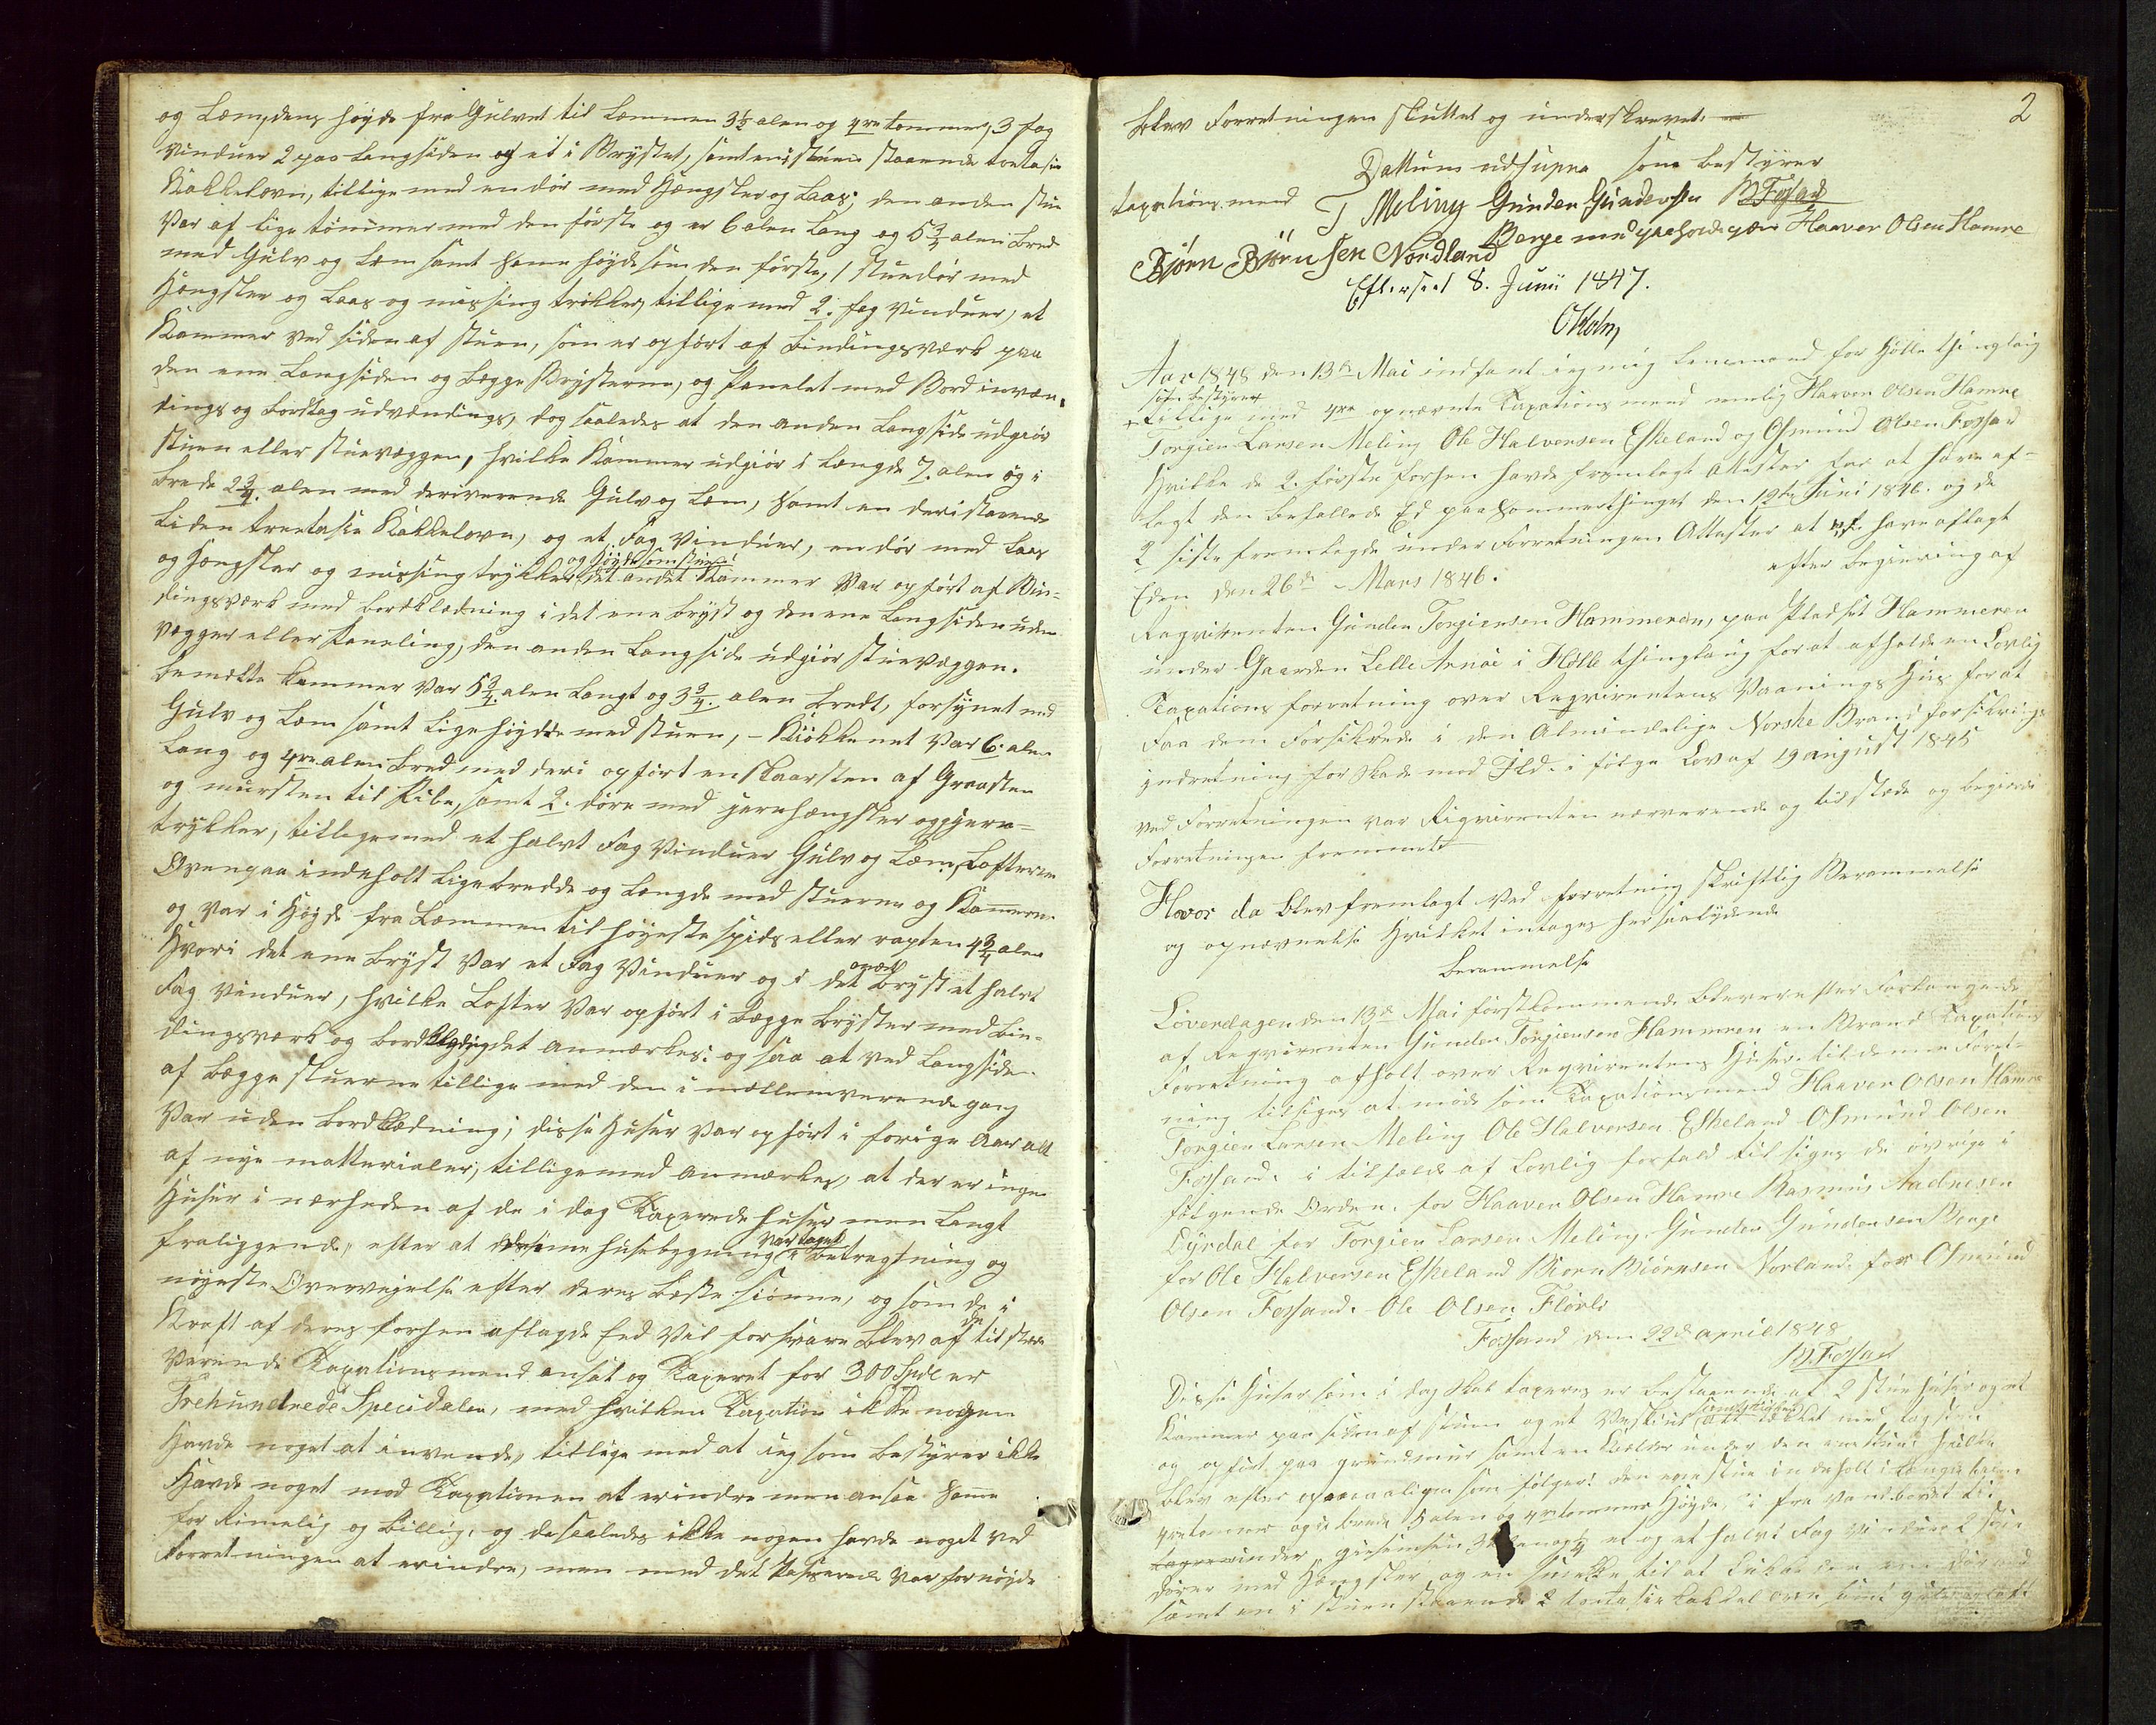 og Lem, dens høyde fra Gulvet til Lemmen 3½ alen og 4re tommer, 3 fag
Vinduer 2 paa Langsiden og et i Brystet, samt en i stuen staaende toetasie
Kakkelovn, tillige med en dör med Hængsler og Laas; den anden stue
Var af lige tömmer med den förste og er 6 alen Lang og 5¾ alen Bred
med Gulv og Lem samt samme höyde som den förste, 1 stuedör med
Hængsler og Laas og missing trökker, tillige med 2. fag Vinduer, et
Kammer ved siden af stuen, som er opfört af Bindingsværk paa
den ene Langsiden og begge Brysterne, og Panelet med Bord invæn-
dings og bordtag udvændings, dog saaledes at den anden Langside udgiör
stuen eller stuevæggen, hvilke Kammer udgiör i Længde 7. alen og i
Brede 2¾. alen med deriværende Gulv og Lem, samt en deri staaende
liden treetasie Kakkelovn, og et Fag Vinduer, en dör med Laas
og Hængsler og missing trykker, og Høyde som stuen det andet Kammer Var opfört af Bin-
dingsværk med bordklædning i det ene bryst og den ene Langsiden uden
vægger eller Paneling, den anden Langside udgiör stuevæggen.
bemelte Kammer Var 5¾. alen Langt og 3¾. alen Bredt, forsynet med
Gulv og Lem samt lige höyde med stuen, - Kiökkenet Var 6 alen
Lang og 4re alen bred med deri opfört en skaarsten af Graasten
og mursten til Pibe, samt 2. döre med jernhængsler og jern-
trykker, tilligemed et halvt Fag Vinduer Gulv og Lem, Lofterne
Ovenpaa indeholt lige bredde og Længde med stuerne og Kammere
og Var i Höyde fra Lemmen til höyeste spids eller raften 4¾ alen
Hvori det ene bryst Var et Fag Vinduer og i det andet Bryst et halvt
Fag Vinduer, hvilke Lofter Var opfört i begge bryster med Bin-
dingsværk og bord det anmærkes: og saa at ved Langsiden
af begge stuerne tillige med den i mellemverende gang
Var uden bordklædning; disse Huser Var opfört i forige Aar alt
af nye matterialer; tilligemed anmærkes, at der er ingen
Huser i nærheden af de i dag Taxerede huser men Langt
fraliggende, efter at denne husebygning var taget i betragtning og
nöyeste Overveyelse efter deres beste skiönne, og som de i
Kraft af deres forhen aflagde Eed Vil forsvare blev af de tilstede
Værende Taxationsmænd ansat og Taxeret for 300 Spdl er
Trehundrede Speciedaler, med hvilken Taxation ikke nogen
Havde noget at invende, tillige med at ieg som bestyrer ikke
Havde noget mod Taxationen at erindre men ansaa samme
for Rimelig og billig, og da saaledes ikke nogen havde noget ved
Forretningen at erindre, men med det Passerede Var fornöyde
2
blev Forretningen sluttet og underskrevet.
Dattum udsupra som bestyrer
taxations mænd T Meling Gunder Gundersen B Fossan
Berge med paaholden pen Haaver Olsen Hamre
Björn Björnsen Nordland
Efterseet 8. Juni 1847.
Aar 1848 den 13de Mai indfant ieg mig Lensmand for Hölle thinglaig
som bestyrer
tillige med 4re opnævnte Taxations mænd nemlig Haaven Olsen Hamre
Torgier Larsen Meling Ole Halversen Eskeland og Osmund Olsen Fossan
Hvilke de 2. förste forhen havde fremlagt Attester for at have af-
lagt den befallede Ed paa Sommerthinget den 12te Juni 1846. og de
2 siste fremlagde under Forretningen Attester at have aflagt
Eden den 26de Mars 1846. efter begiæring af
Reqvirenten Gunder Torgiersen Hammeren, paa Pladset Hammeren
under Gaarden Lelle Arnöe i Hölle thinglaug for at afholde en Lovlig
Taxations forretning over Reqvirentens Vaanings Hus for at
Faa dem Forsikrede i den Almindelige Norske Brand forsikrings
indretning for Skade med Ild. i fölge Lov af 19 august 1845
ved Forretningen var Reqvirenten nærverende og tilstede og begierede
Forretningen fremmet
Hvor da blev fremlagt Ved forretning skriftlig Berammelse
og opnævnelse Hvilket intages her saalydende
Berammelse
Löverdagen den 13de Mai förstkommende bliver efter Forlangende
af Reqvirenten Gunder Torgiersen Hammeren en Brand Taxations
Forretning afholt over Reqvirentens Huser. til denne Forret-
ning tilsiges at möde som Taxationsmænd Haaver Olsen Hamre
Torgier Larsen Meling Ole Halversen Eskeland Osmund Olsen
Fossand. i tilfælde af Lovlig forfald tilsiges de övrige i
fölgende Orden. for Haaven Olsen Hamre Rasmus Aadnesen
Dyrdal for Torgier Larsen Meling. Gunder Gundersen Berge
for Ole Halversen Eskeland Biörn Biörnsen Norland. for Osmund
Olsen Fossand. Ole Olsen Flörli
Fossand den 22de april 1848
B. Fossan
Disse Huser som i dag skal taxeres er bestaaende af 2 stue huser og et
Kammer paa siden af stuen og et Veskiul alt tækket med tagsten
og opfört paa grundmur samt en Kielder under den ene stue hvilke
blev efter som fölger: den ene stue indeholt i Længde
4re tommer og i brede 5 alen og 4re tommer Höyde, i fra Vand bordet til
under et og et halvt Fag Vinduer 2
dörer med Hængsler og en til at Lukke den ene dör med
samt en i stuen staaende 2 toetasie kakkelovn samt gulv og loft